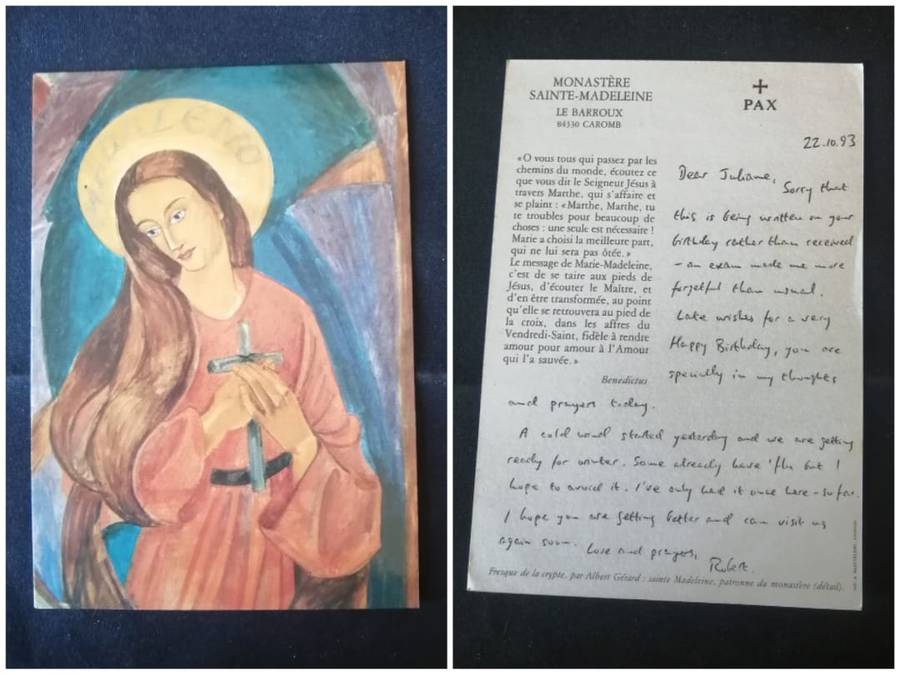 MONASTÈRE
SAINTE-MADELEINE
LE BARROUX
84330 CAROMB
PAX
«O vous tous qui passez par les
chemins du monde, écoutez ce
que vous dit le Seigneur Jésus à
travers Marthe, qui s'affaire et
se plaint : «Marthe, Marthe, tu
te troubles pour beaucoup de
choses : une seule est nécessaire !
Marie a choisi la meilleure part,
qui ne lui sera pas ôtée.»
Le message de Marie-Madeleine,
c'est de se taire aux pieds de
Jésus, d'écouter le Maître, et
d'en être transformée, au point
qu'elle se retrouvera au pied de
la croix, dans les affres du
Vendredi-Saint, fidèle à rendre
amour pour amour à l'Amour
qui l'a sauvée.»
Benedictus
22.10.93
Dear Juliane, Sorry that
this is being written on your
birthday rather than received
- an exam made me more
forgetful than usual.
Late wishes for a very
Happy Birthday, you are
specially in my thoughts
and prayers today.
A cold wind started yesterday and we are getting
ready for winter. Some already have 'flu but I
hope to avoid it. I've only had it once here - so far.
I hope you are getting better and can visit us
again soon. Love and prayers,
Robert.
Fresque de la crypte, par Albert Gérard : sainte Madeleine, patronne du monastère (détail).